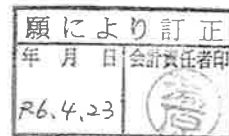 願により訂正
年 月 日 会計責任者印
R6.4.23